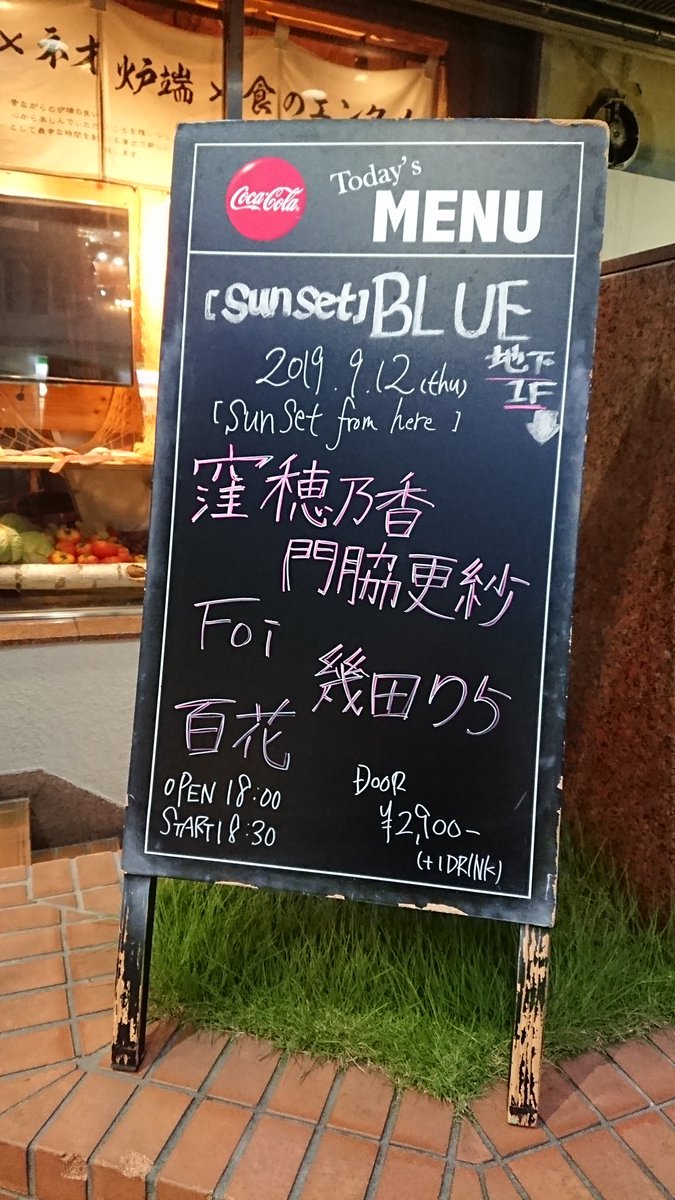 ×ネオ炉端×食のエンタメ
Coca-Cola
Today's
MENU
[Sunset]BLUE
2019.9.12(thu)
地下
1F
[Sunset from here]
窪穂乃香
門脇更紗
Foi
幾田りら
百花
OPEN 18:00
START 18:30
DOOR
¥2,900-
(+1DRINK)